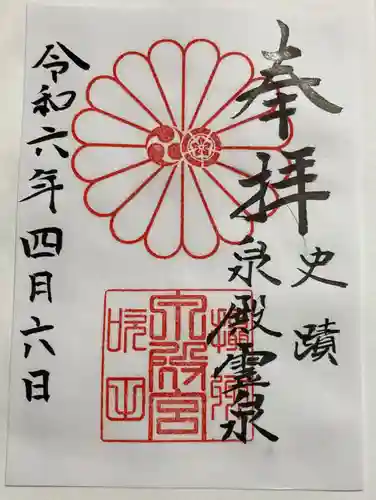 奉拝
史蹟
泉殿霊泉
泉殿宮
令和六年四月六日